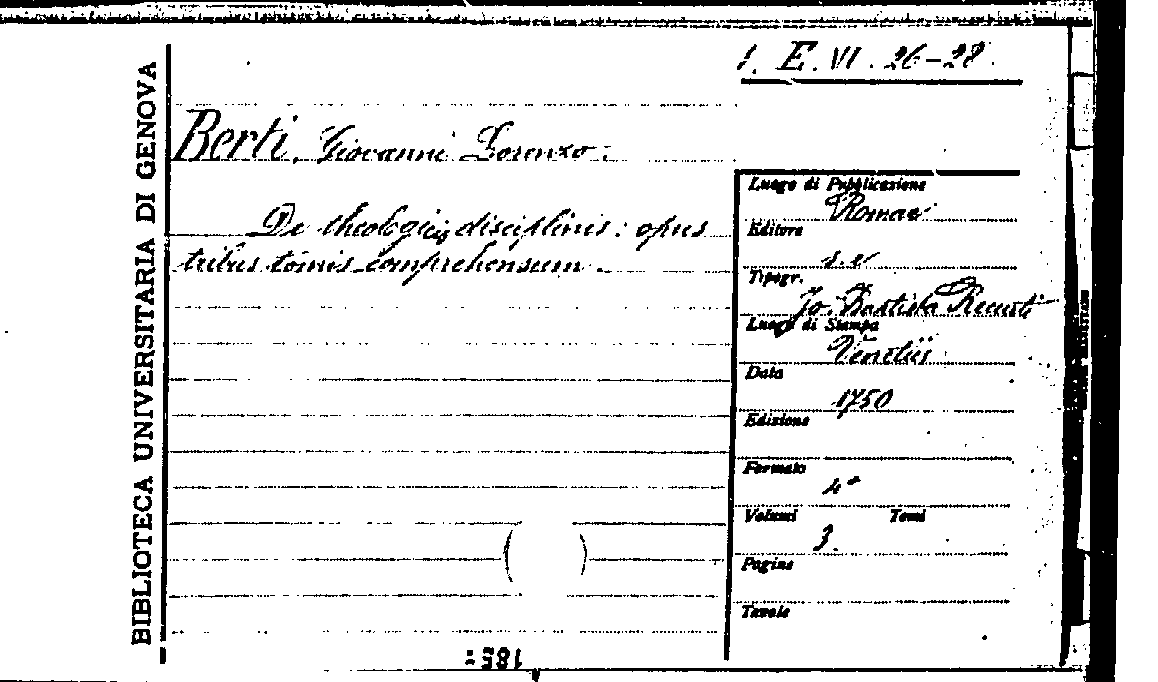 1. E. VI. 26-28.
BIBLIOTECA UNIVERSITARIA DI GENOVA
Berti, Giovanni Lorenzo.
De theologicis disciplinis: opus
tribus tomis comprehensum.
Luogo di Pubblicazione
Romae
Editore
s. e.
Tipogr.
Jo. Battista Recurti
Luogo di Stampa
Venetiis
Data
1750
Edizione
Formato
4°
Volumi Tomi
3.
Pagine
Tavole